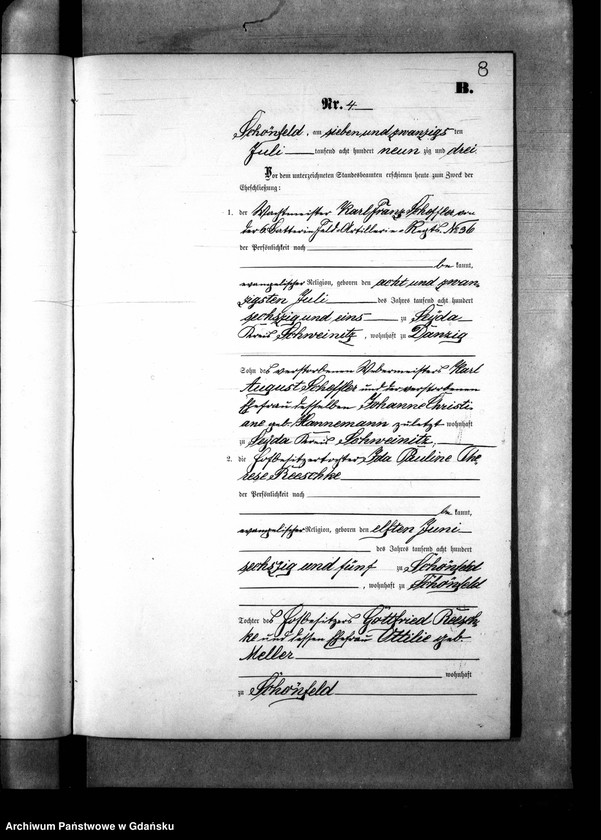 8
B.
Nr. 4
Schönfeld, am sieben und zwanzigsten
Juli tausend acht hundert neun zig und drei.
Vor dem unterzeichneten Standesbeamten erschienen heute zum Zweck der
Eheschließung:
1. der Wachtmeister Karl Franz Scheffler von
der 6. Batterie Feld-Artillerie-Regts. No 36
der Persönlichkeit nach
be kannt,
evangelischer Religion, geboren den acht und zwan-
zigsten Juli des Jahres tausend acht hundert
sechszig und eins zu Seyda
Kreis Schweinitz, wohnhaft zu Danzig
Sohn des verstorbenen Webermeisters Karl
August Scheffler und der verstorbenen
Ehefrau desselben Johanne Christi-
ane geb. Hannemann zuletzt wohnhaft
zu Seyda Kreis Schweinitz,
2. die Hofbesitzertochter Ida Pauline The-
rese Reeschke
der Persönlichkeit nach
be kannt,
evangelischer Religion, geboren den elften Juni
des Jahres tausend acht hundert
sechszig und fünf zu Schönfeld
, wohnhaft zu Schönfeld
Tochter des Hofbesitzers Gottfried Reesch-
ke und dessen Ehefrau Ottilie geb.
Meller
wohnhaft
zu Schönfeld
Archiwum Państwowe w Gdańsku